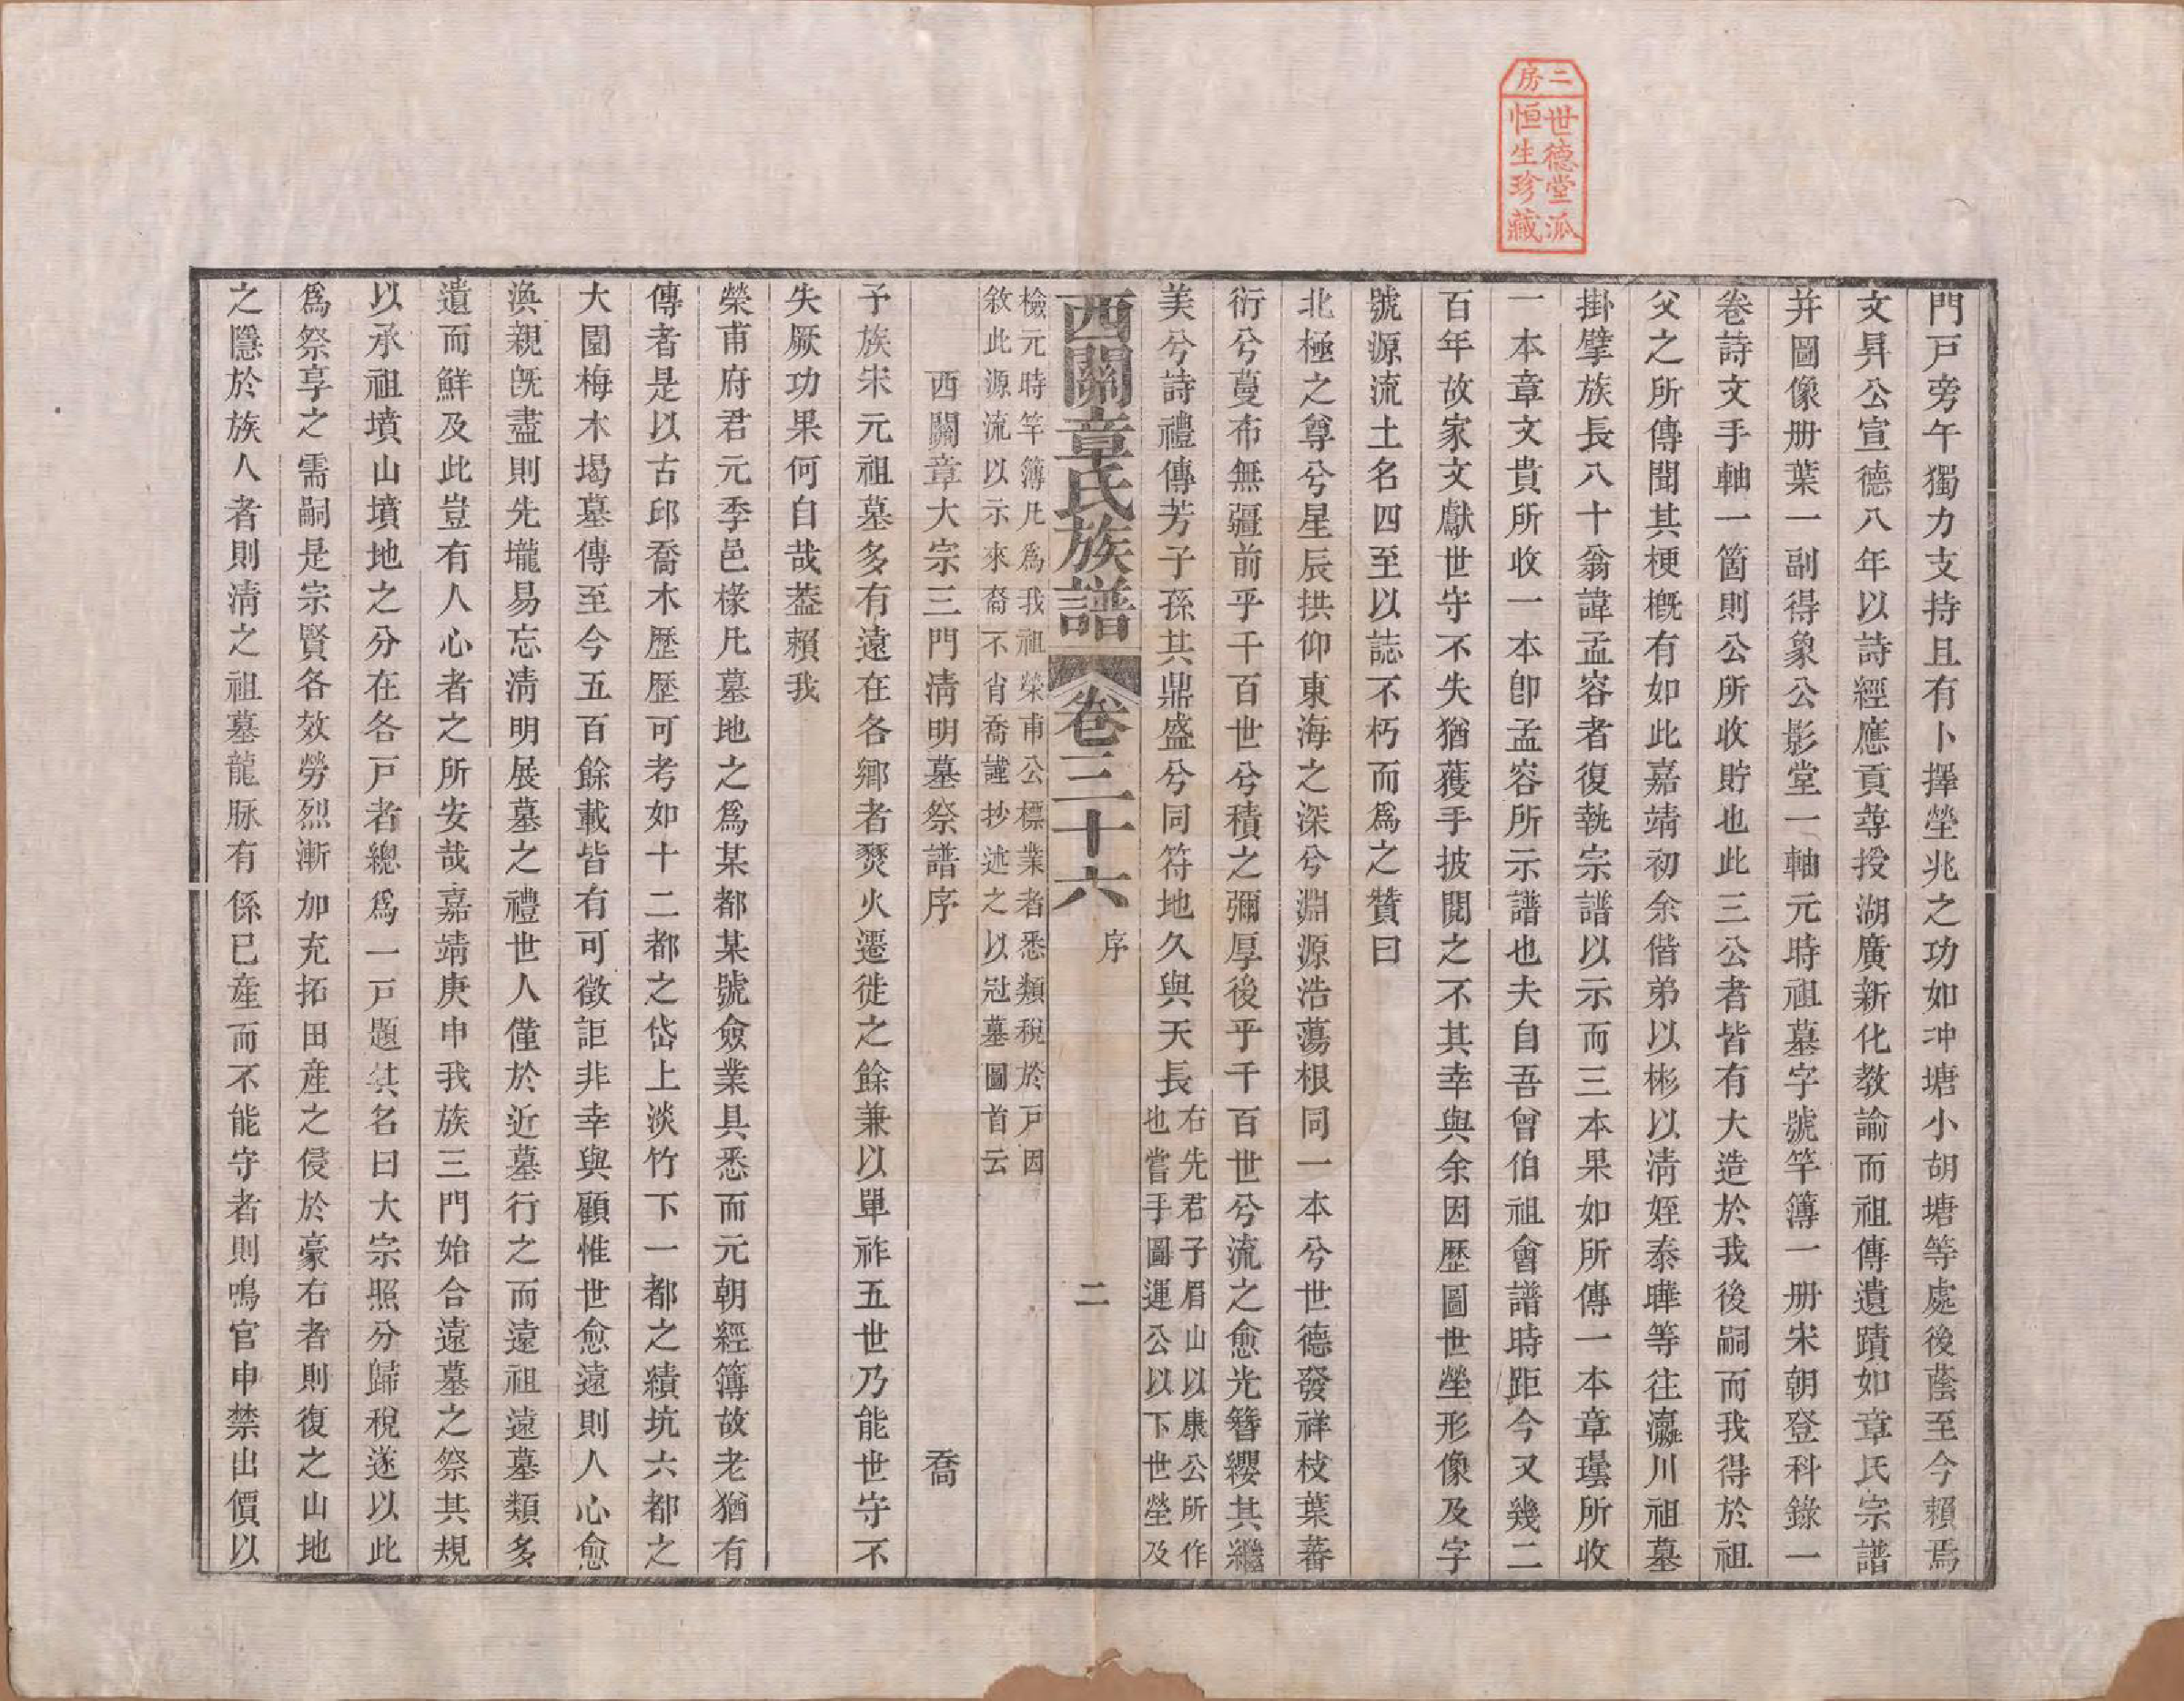 二房
世德堂派
恒生珍藏
門戸旁午獨力支持且有卜擇塋兆之功如冲塘小胡塘等處後蔭至今賴焉
文昇公宣德八年以詩經應貢蕁授湖廣新化教諭而祖傳遺蹟如章氏宗譜
并圖像册葉一副得象公影堂一軸元時祖墓字號竿簿一册宋朝登科錄一
卷詩文手軸一箇則公所收貯也此三公者皆有大造於我後嗣而我得於祖
父之所傳聞其梗槪有如此嘉靖初余偕弟以彬以淸姪泰曄等往瀛川祖墓
掛擘族長八十翁諱孟容者復執宗譜以示而三本果如所傳一本章璂所收
一本章文貴所收一本卽孟容所示譜也夫自吾曾伯祖會譜時距今又幾二
百年故家文獻世守不失猶獲手披閱之不其幸與余因歷圖世塋形像及字
號源流土名四至以誌不朽而爲之贊曰
北極之尊兮星辰拱仰東海之深兮淵源浩蕩根同一本兮世德發祥枝葉蕃
衍兮蔓布無疆前乎千百世兮積之彌厚後乎千百世兮流之愈光簪纓其繼
美兮詩禮傳芳子孫其鼎盛兮同符地久與天長
右先君子眉山以康公所作
也嘗手圖運公以下世塋及
西關章氏族譜 卷三十六 序 二
檢元時竿簿凡爲我祖榮甫公標業者悉類稅於戸因
敘此源流以示來裔不肖喬謹抄述之以冠墓圖首云
西關章大宗三門淸明墓祭譜序 喬
予族宋元祖墓多有遠在各鄉者燹火遷徙之餘兼以單祚五世乃能世守不
失厥功果何自哉葢賴我
榮甫府君元季邑椽凡墓地之爲某都某號僉業具悉而元朝經簿故老猶有
傳者是以古邱喬木歷歷可考如十二都之岱上淡竹下一都之績坑六都之
大園梅木堨墓傳至今五百餘載皆有可徵詎非幸與顧惟世愈遠則人心愈
渙親旣盡則先壠易忘淸明展墓之禮世人僅於近墓行之而遠祖遠墓類多
遺而鮮及此豈有人心者之所安哉嘉靖庚申我族三門始合遠墓之祭其規
以承祖墳山墳地之分在各戸者總爲一戸題其名曰大宗照分歸稅遂以此
爲祭享之需嗣是宗賢各效勞烈漸加充拓田產之侵於豪右者則復之山地
之隱於族人者則淸之祖墓龍脉有係已產而不能守者則鳴官申禁出價以